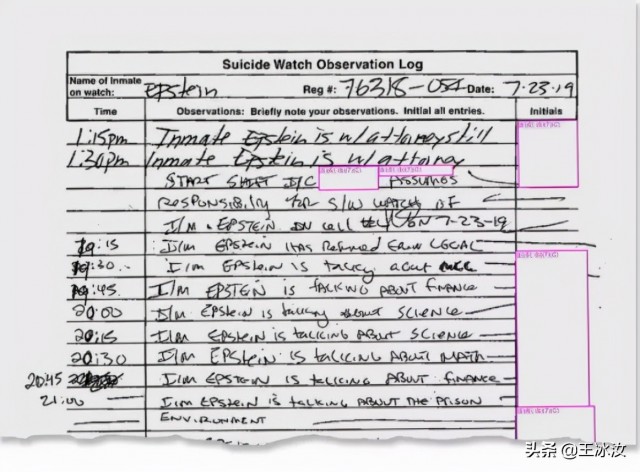 Suicide Watch Observation Log
Name of Inmate on watch: EPSTEIN Reg #: 76318-054 Date: 7-23-19
Time Observations: Briefly note your observations. Initial all entries. Initials
1:15pm Inmate Epstein is w/attorney still
1:30pm Inmate Epstein is w/attorney
START SHIFT I/C ASSUMES
RESPONSIBILITY FOR S/W WATCH OF
I/M EPSTEIN IN cell ON 7-23-19
19:15 I/M EPSTEIN HAS Returned FROM LEGAL
19:30 I/M EPSTEIN IS talking about MCC
19:45 I/M EPSTEIN IS TALKING ABOUT FINANCE
20:00 I/M EPSTEIN IS talking about SCIENCE
20:15 I/M EPSTEIN IS TALKING ABOUT SCIENCE
20:30 I/M EPSTEIN IS TALKING ABOUT MATH
20:45 I/M EPSTEIN IS TALKING ABOUT FINANCE
21:00 I/M EPSTEIN IS TALKING ABOUT THE PRISON
ENVIRONMENT
头条 @王冰汝